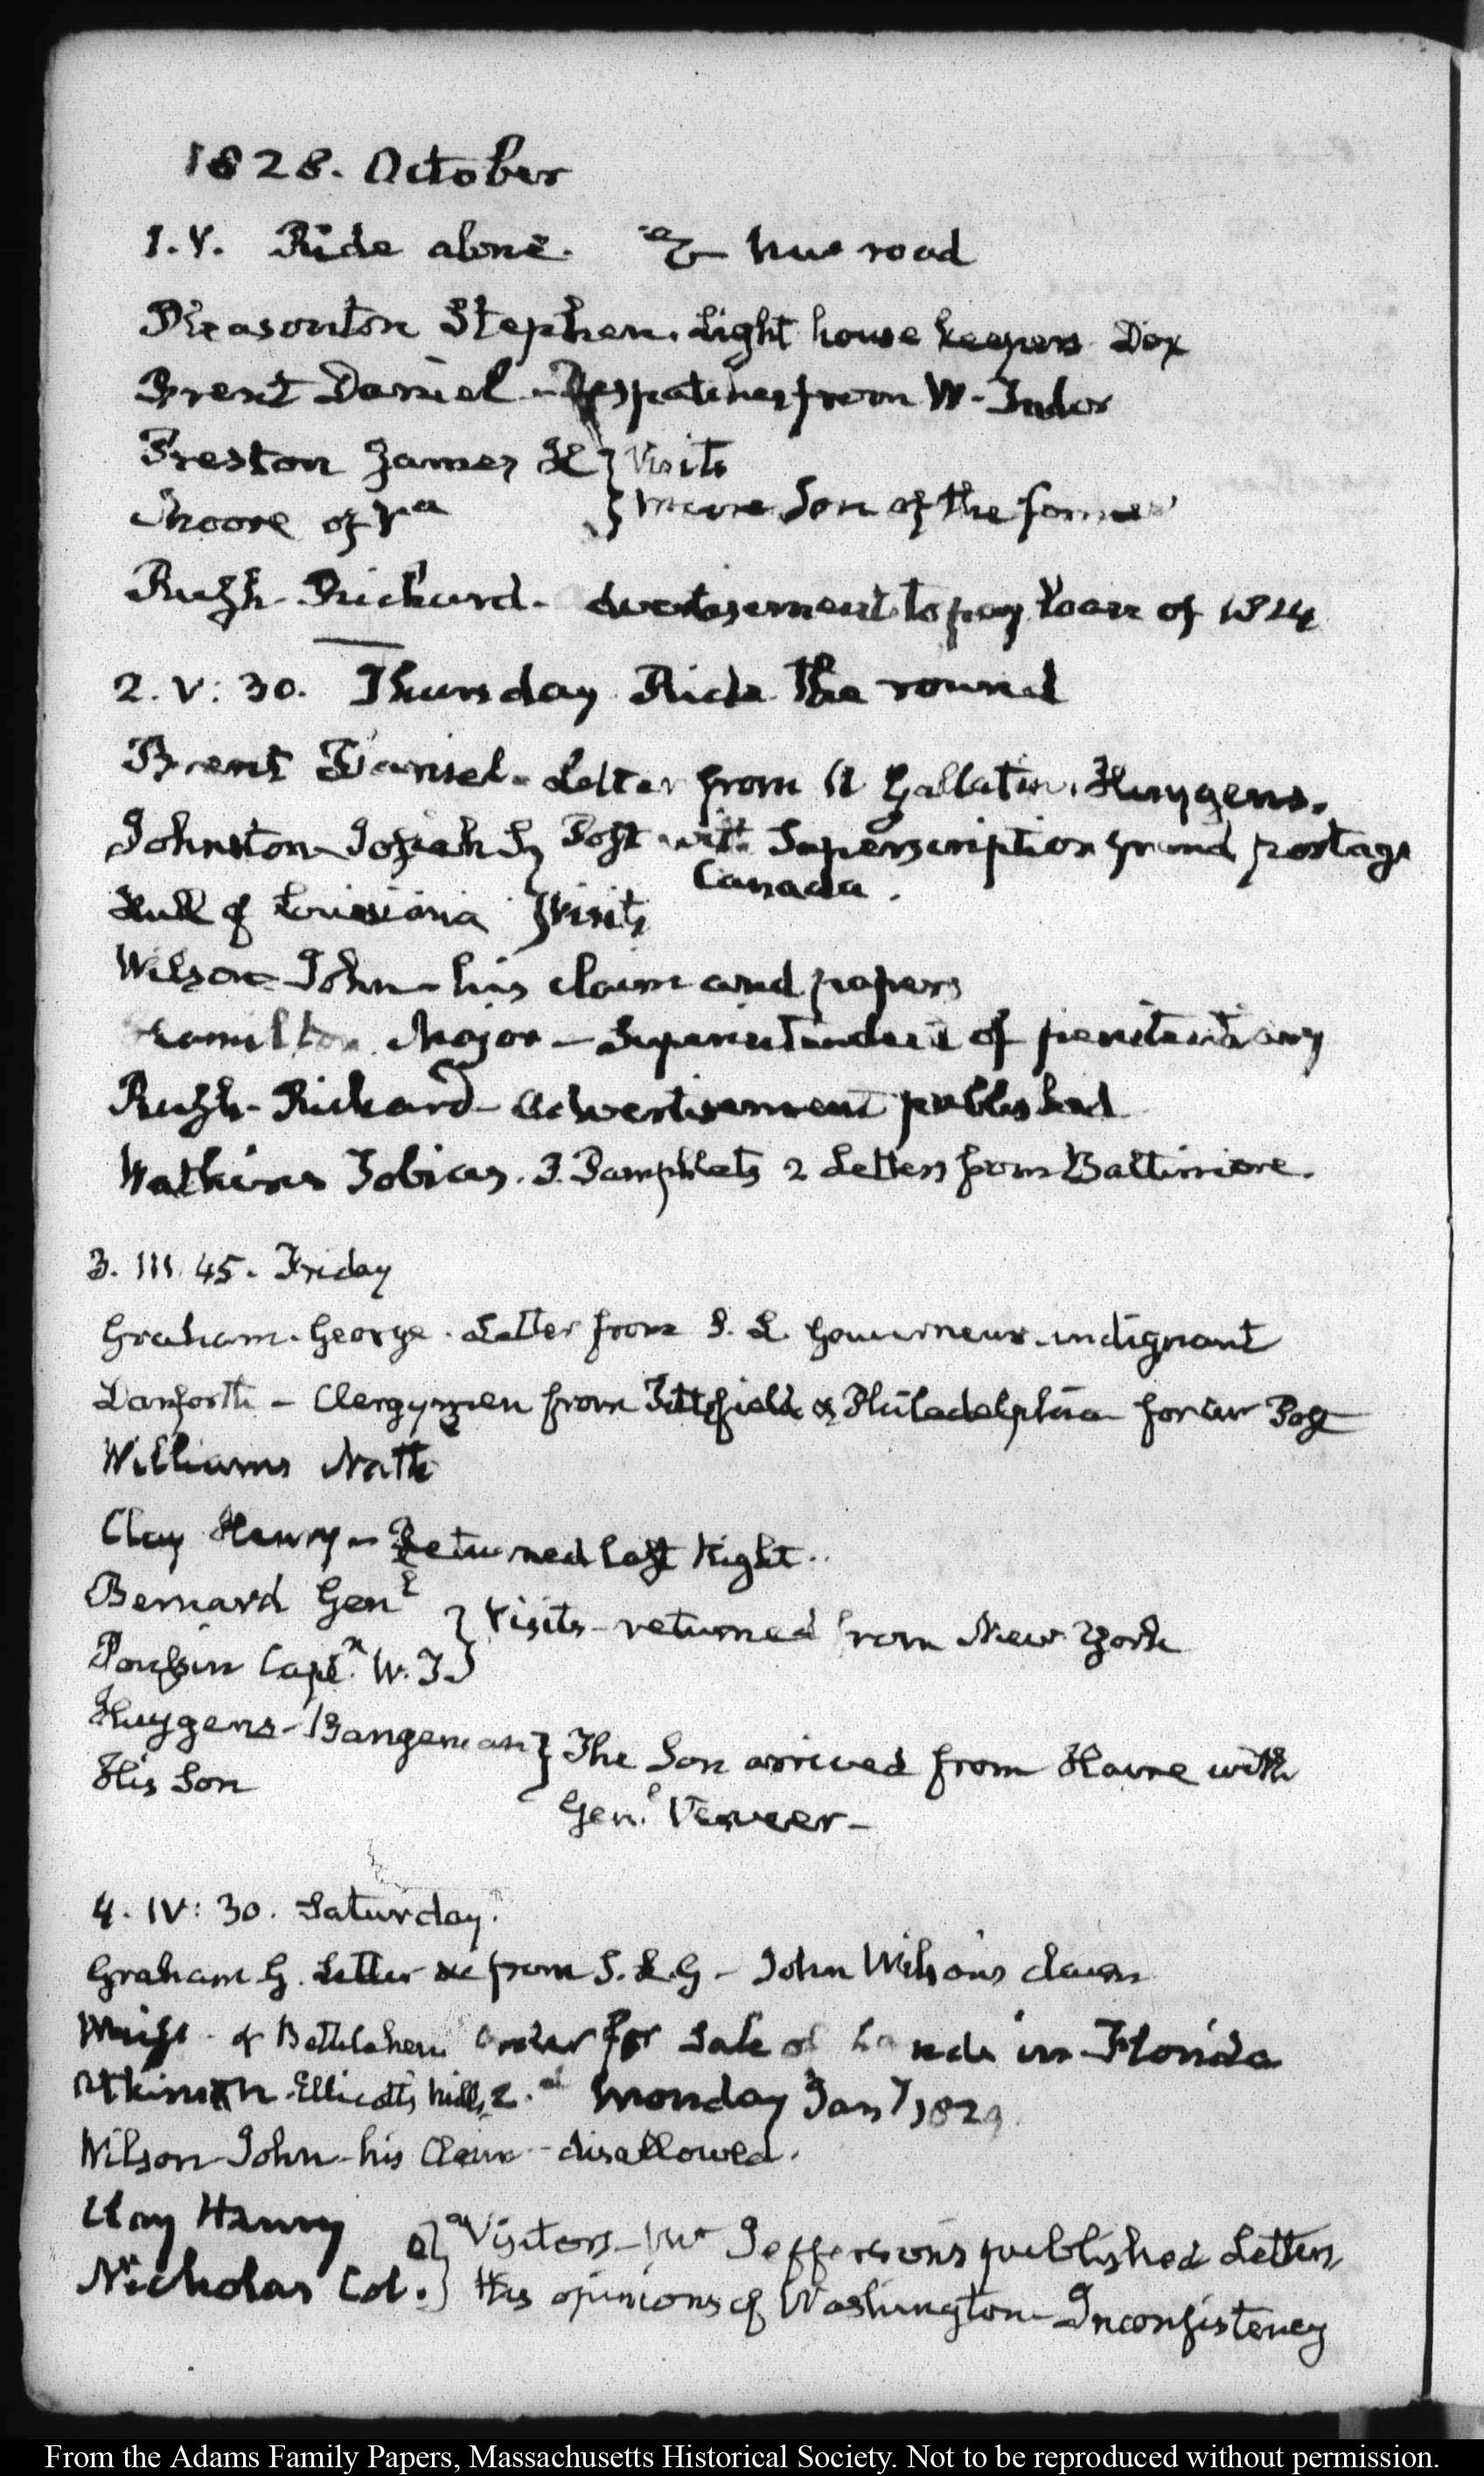 1828. October
1. V. Ride alone. new road
Pleasonton Stephen. Light house keepers Dox
Brent Daniel - Despatches from W. Tudor
Preston James } Visits
Moore of Va } Son of the former
Rush - Richard - advertisement to pay Loan of 1814
2. V: 30. Thursday Ride the round
Brent Daniel - Letter from A Gallatin, Huygens.
Johnston Josiah S } Post with Superscription postage
Canada.
Hull of Louisiania } Visits
Wilson John - his claim and papers
Hamilton Major - Superintendent of penitentiary
Rush - Richard - advertisement published
Watkins Tobias. 3. Pamphlets 2 Letters from Baltimore.
3. III. 45. Friday
Graham. George. Letter from S. L. Gouverneur indignant
Danforth - Clergymen from Pittsfield & Philadelphia for
Williams Nathl
Clay Henry - Returned last Night..
Bernard Genl } Visits - returned from New York
Poussin Captn W. T. }
Huygens - Bangeman } The Son arrived from Havre with
His Son
Genl Verveer -
4. IV: 30. Saturday.
Graham G. Letter from S. L. G - John Wilson's claim
of Bethlehem Order for Sale of Lands in Florida
Atkinson Ellicott's Mills 2.d Monday Jany 1829
Wilson John - his Claim - disallowed.
Clay Henry } Visitors - Mr Jefferson's published Letters
Nicholas Col. } His opinions of Washington - Inconsistency
From the Adams Family Papers, Massachusetts Historical Society. Not to be reproduced without permission.